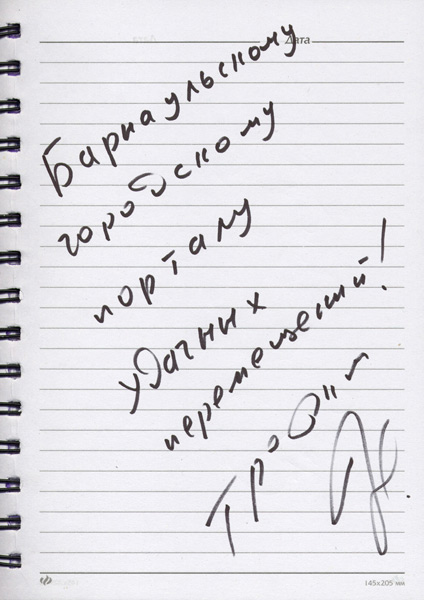 Дата
Барнаульскому
городскому
порталу
удачных
перемещений!
145x205 мм